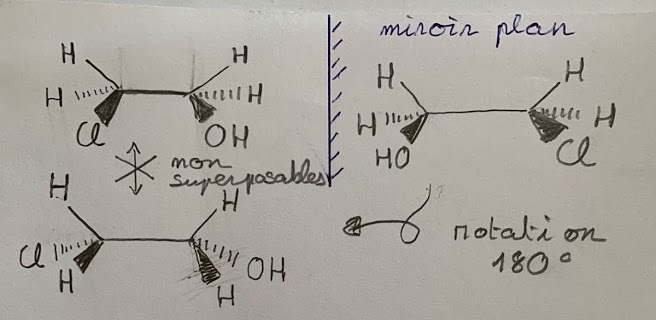 miroir plan
H H
H H
Cl OH
H H
H H
HO Cl
non
superposables
H H
Cl OH
H H
rotation
180°